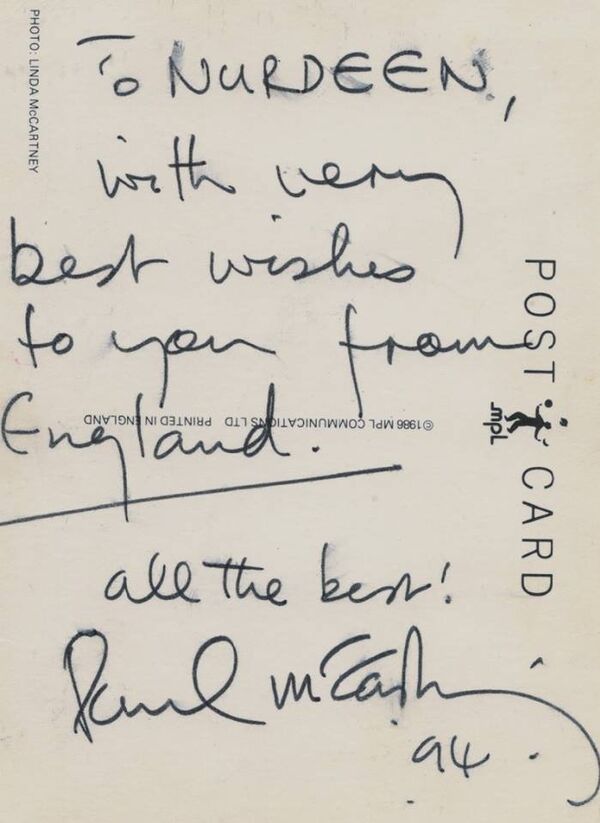 To NURDEEN,
with very
best wishes
to you from
England.
all the best!
Paul McCartney
94.
PHOTO: LINDA McCARTNEY
POST CARD
mpL
©1986 MPL COMMUNICATIONS LTD PRINTED IN ENGLAND